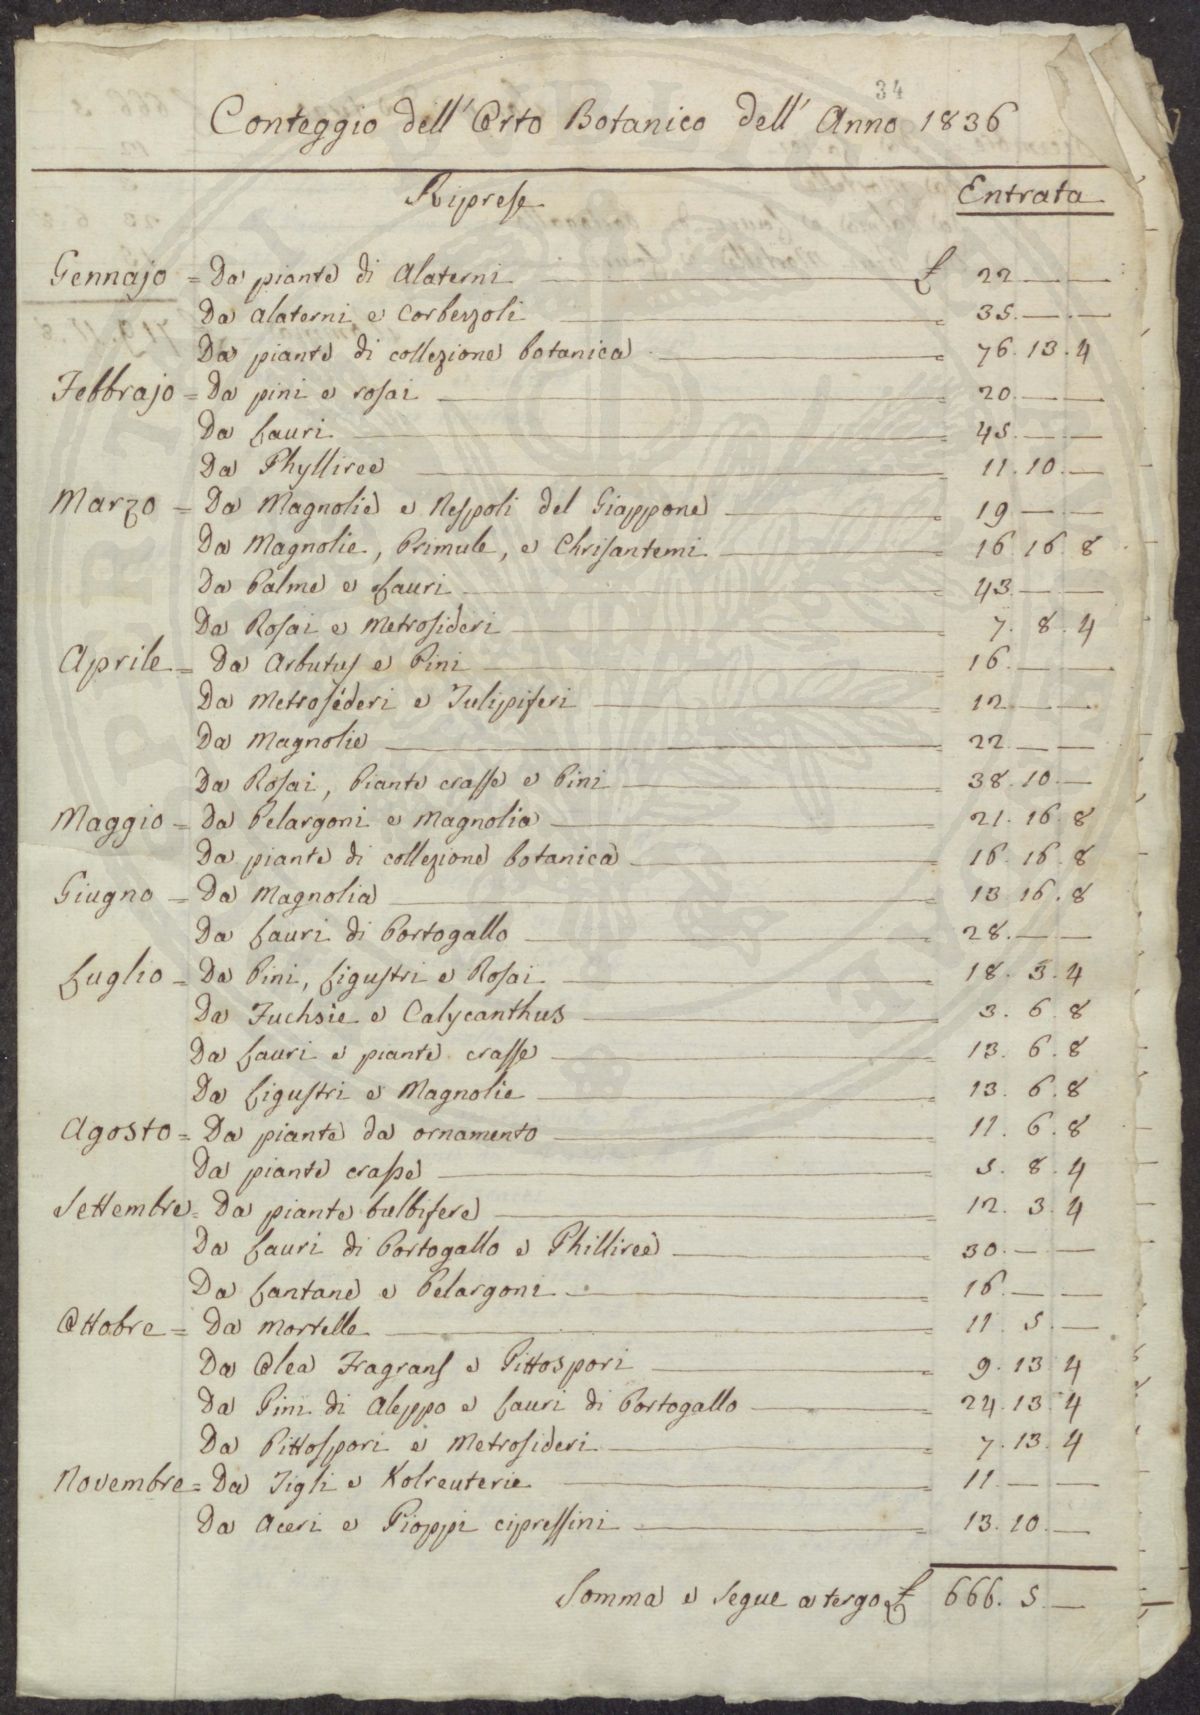 34
Conteggio dell' Orto Botanico dell' Anno 1836
Riprese Entrata
Gennajo = Da piante di Alaterni £ 22 — —
Da Alaterni e Corbezzoli = 35. — —
Da piante di collezione botanica = 76. 13. 4
Febbrajo = Da pini e rosai = 20. — —
Da Lauri = 45. — —
Da Phylliree = 11. 10. —
Marzo = Da Magnolie e Nespoli del Giappone = 19 — —
Da Magnolie, Primule, e Chrisantemi = 16. 16. 8
Da Palme e Lauri = 43. — —
Da Rosai e Metrosideri = 7. 8. 4
Aprile = Da Arbutus e Pini = 16. — —
Da Metrosideri e Tulipiferi = 12 — —
Da Magnolie = 22. — —
Da Rosai, Piante crasse e Pini = 38. 10. —
Maggio = Da Pelargoni e Magnolia = 21. 16. 8
Da piante di collezione botanica = 16. 16. 8
Giugno = Da Magnolia = 13. 16. 8
Da Lauri di Portogallo = 28. — —
Luglio = Da Pini, Ligustri e Rosai = 18. 3. 4
Da Fuchsie e Calycanthus = 3. 6. 8
Da Lauri e piante crasse = 13. 6. 8
Da Ligustri e Magnolie = 13. 6. 8
Agosto = Da piante da ornamento = 11. 6. 8
Da piante crasse = 5. 8. 4
Settembre = Da piante bulbifere = 12. 3. 4
Da Lauri di Portogallo e Philliree = 30. — —
Da Lantane e Pelargoni = 16. — —
Ottobre = Da Mortelle = 11. 5. —
Da Olea Fragrans e Pittospori = 9. 13. 4
Da Pini di Aleppo e Lauri di Portogallo = 24. 13. 4
Da Pittospori e Metrosideri = 7. 13. 4
Novembre = Da Tigli e Kolreuterie = 11. — —
Da Aceri e Pioppi cipressini = 13. 10. —
Somma e segue a tergo £ 666. 5. —